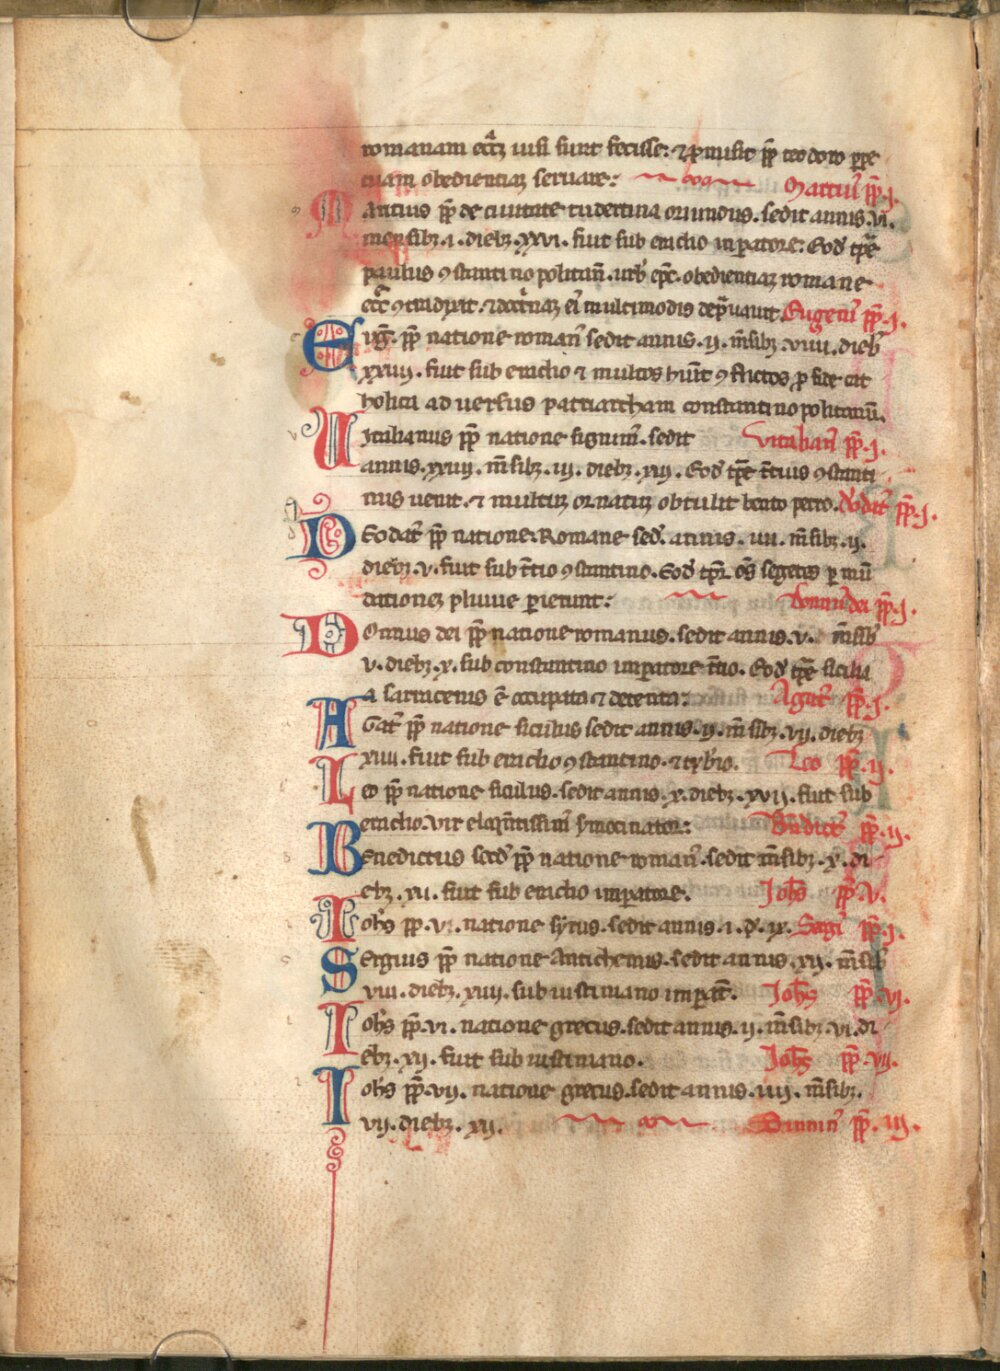 romanam eccłaȝ iusi sunt fecisse: ⁊ ꝓmisit pp̄ teodoro ꝑpe
tuam obedientiaȝ seruare: Martiu᷒ pp̄.j.
Artius pp̄ de ciuitate tudertina oriundus. sedit annis. vi.
mensibȝ.i. diebȝ.xxvi. fuit sub eraclio imꝑatore: Eod̄ tp̄re
paulus ꝯstantinopolitan̄. urb᷒ ep̄c. obedientiaȝ romane
eccł ꝯtradixit. ⁊ doctrinaȝ ei᷒ multimodis dep̄uauit. Eugeni᷒ pp̄.j.
Euḡ. pp̄ natione roman᷒ sedit annis.ii. m̄sibȝ.viiii. dieb᷒
xxiiii. fuit sub eraclio ⁊ multos hūit ꝯflictos ꝓ fide cat
holica aduersus patriarcham constantinopolitanū.
Uitalianus pp̄ natione signinu᷒. sedit Vitalian᷒ pp̄.j.
annis.xxiii. m̄sibȝ.iii. diebȝ.xii. Eod̄ tp̄re t̄cius ꝯstanti
nus uenit. ⁊ multuȝ ornatuȝ obtulit beato petro. Adodat᷒ pp̄.j.
Deodat᷒ pp̄ natione Romane sed̄. annis.iiii. m̄sibȝ.ii.
diebȝ.v. fuit sub t̄cio ꝯstantino. Eod̄ tp̄r om̄s segetes ꝑ inū
dationeȝ pluuie ꝑierunt: Domnu᷒ dei pp̄.j.
Domnus dei pp̄ natione romanus. sedit annis.v. m̄sib᷒
v. diebȝ.x. sub constantino imꝑatore t̄cio. Eod̄ tp̄re sicilia
a sarracenis ē occupata ⁊ detenta: Agat᷒ pp̄.j.
Agat᷒ pp̄ natione siculus sedit annis.ii. m̄sibȝ.vii. diebȝ
xiiii. fuit sub eraclio ꝯstantino. ⁊ tyb̄io. Leo pp̄.ii.
Leo pp̄ natione siculus. sedit annis.x. diebȝ.xvii. fuit sub
eraclio. vir eloquētissim᷒ Bn̄dict᷒ pp̄.ii.
Benedictus sed̄ pp̄ natione roman᷒. sedit m̄sibȝ.x. di
ebȝ.xii. fuit sub eraclio imꝑatore. Joh̄s pp̄.v.
Iohs pp.vi. natione syrus. sedit annis.i. d̄.ix. Sergi᷒ pp̄.j.
Sergius pp̄ natione Antichenus. sedit annis.xii. m̄sib᷒
viii. diebȝ.xiiii. sub iustiniano imperat᷒. Joh̄s pp̄.vi.
Iohs pp̄.vi. natione grecus. sedit annis.ii. m̄sibȝ.vi. di
ebȝ.xii. fuit sub iustiniano. Joh̄s pp̄.vii.
Iohs pp̄.vii. natione grecus. sedit annis.iiij. m̄sibȝ.
vii. diebȝ.xii. pp̄.iii.